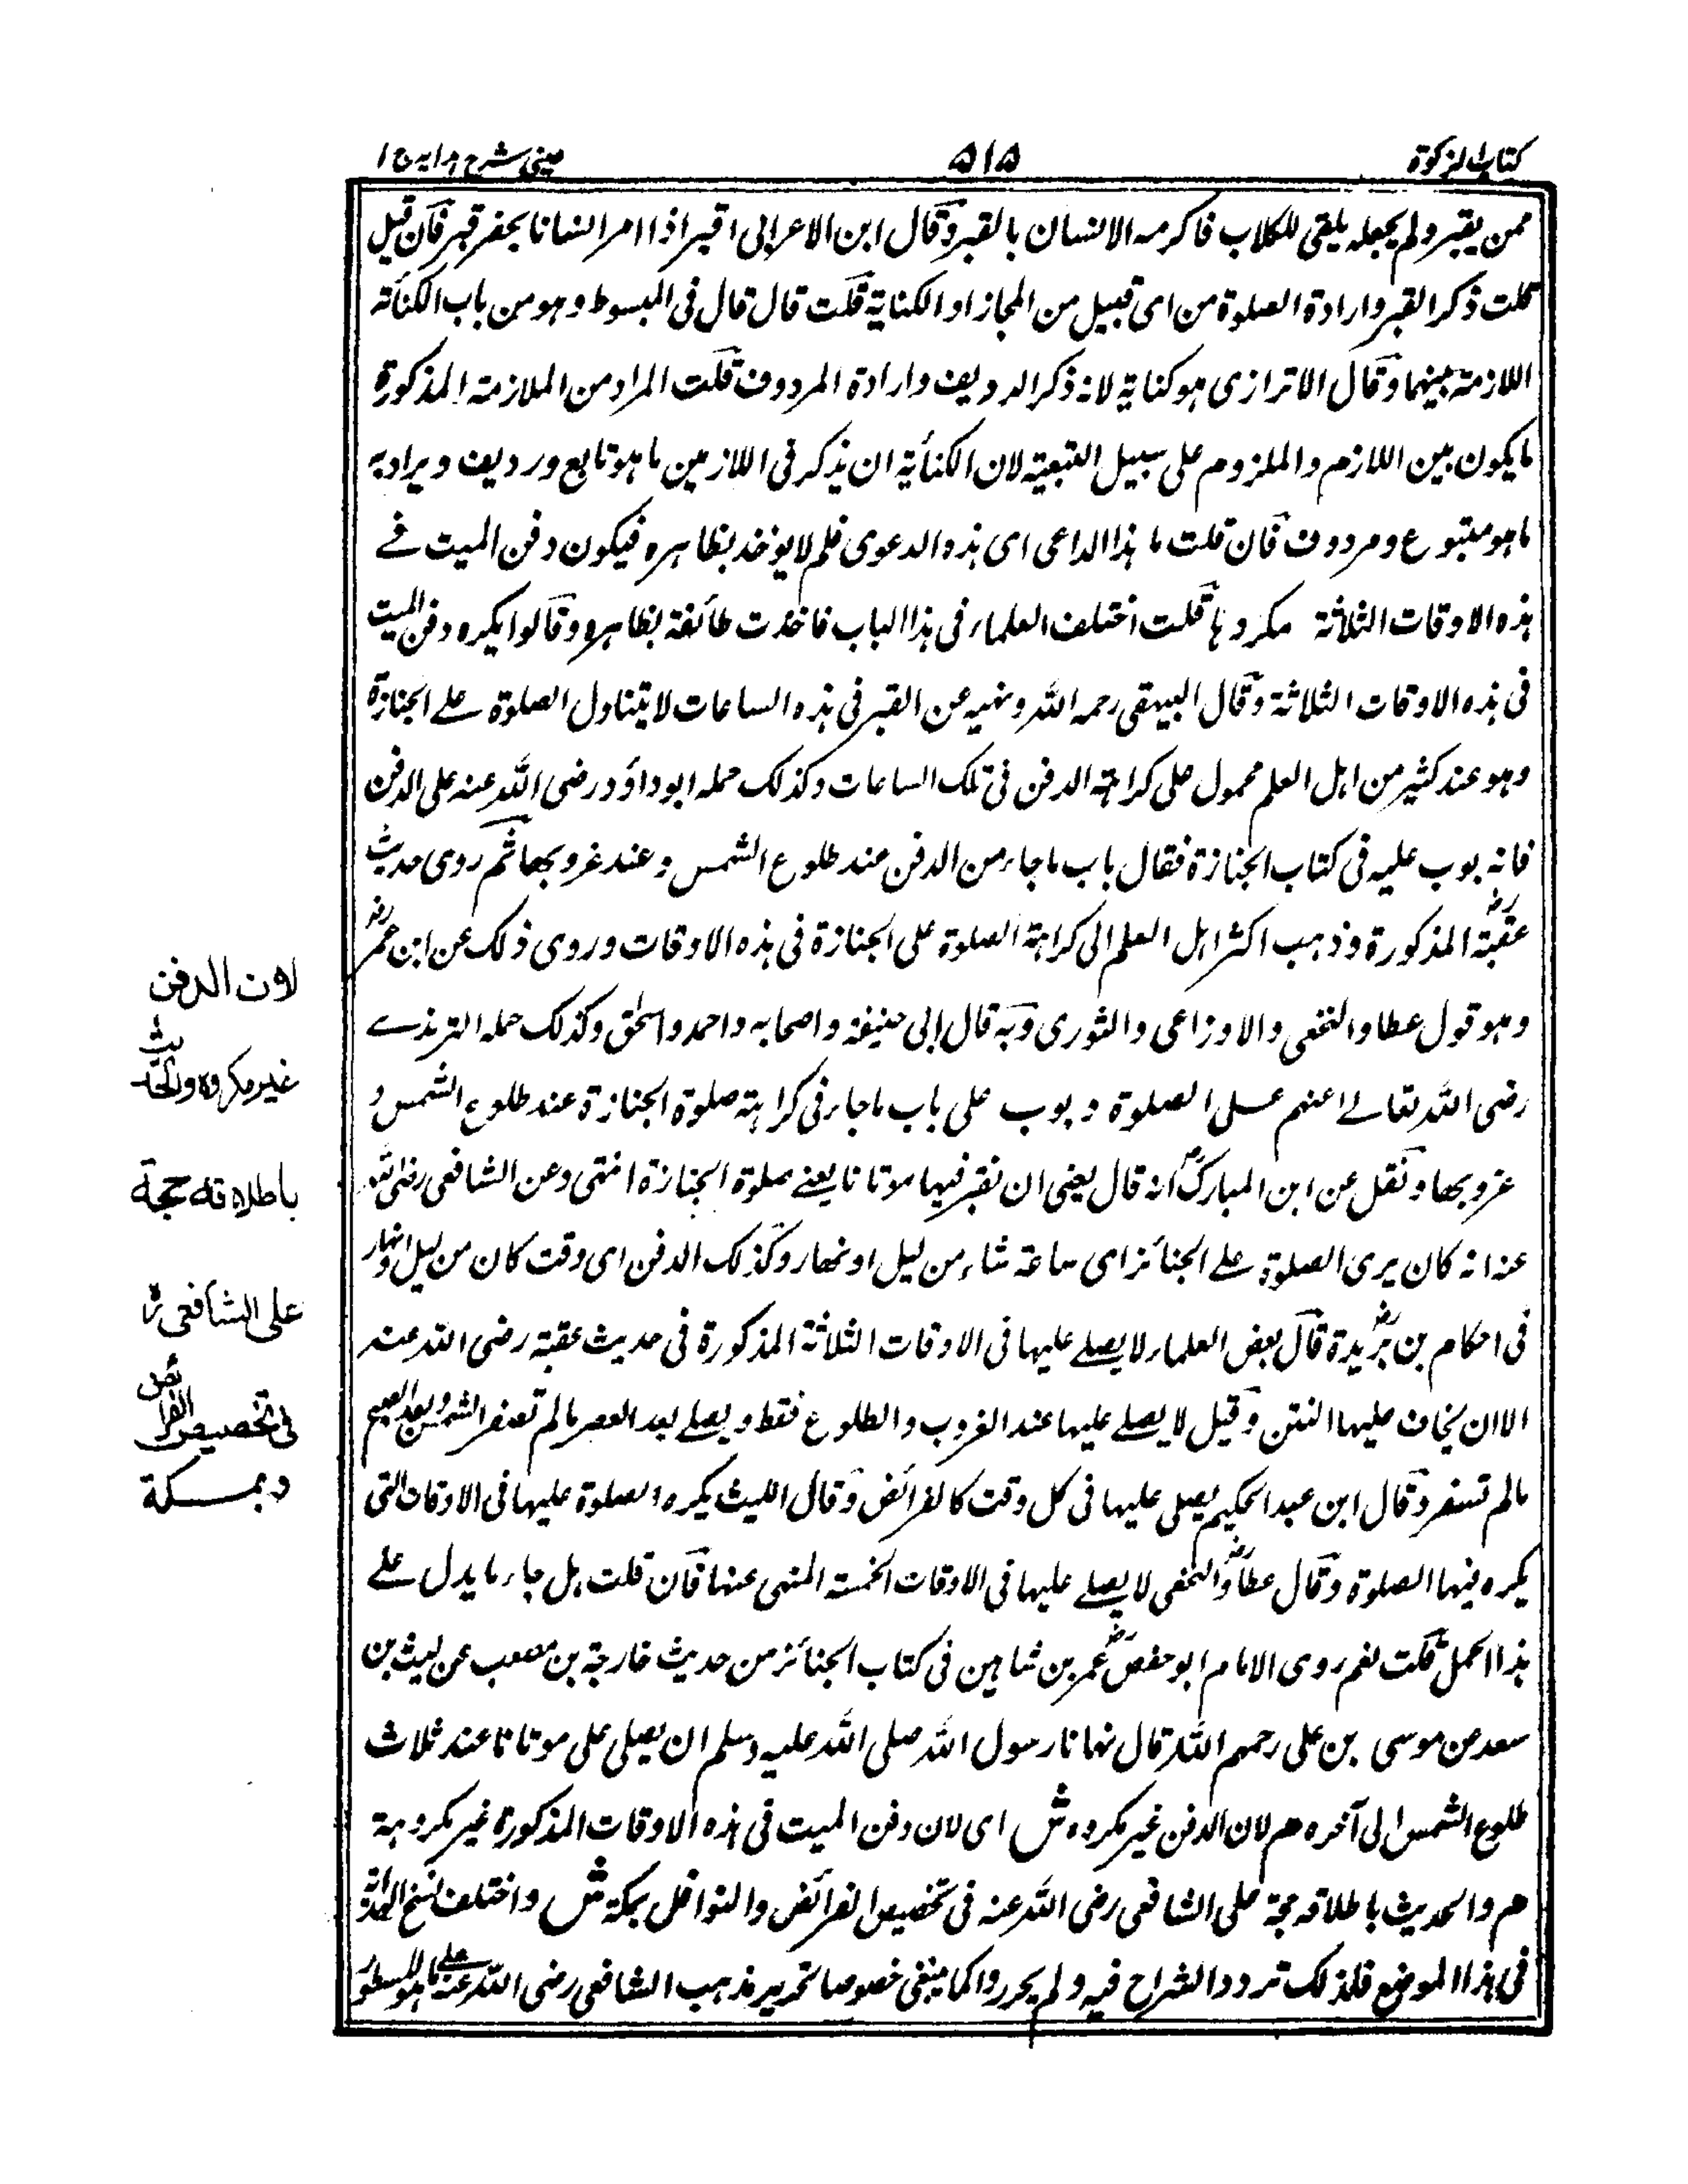 كتاب الزكوة
٥١٥
عينى شرح هدايه ج ا
ممن يقبر ولم يجعله يلقى للكلاب فاكرمه الانسان بالقبر وقال ابن الاعرابى اقبر اذا امر انسانا بحفر قبر فان قيل
قلت ذكر القبر وارادة الصلوة من اى قبيل من المجاز او الكناية قلت قال قال فى المبسوط وهو من باب الكنائة
اللازمة بينهما وقال الاترازى هو كناية لانه ذكر الرديف وارادة المردوف قلت المراد من الملازمة المذكورة
ما يكون بين اللازم والملزوم على سبيل التبعية لان الكنائة ان يذكر فى اللازمين ما هو تابع ورديف ويراد به
ما هو متبوع ومردوف فان قلت ما هذا الداعى اى هذه الدعوى فلم لا يوخذ بظاهره فيكون دفن الميت فى
هذه الاوقات الثلاثة مكروها قلت اختلف العلماء فى هذا الباب فاخذت طائفة بظاهره وقالوا يكره دفن الميت
فى هذه الاوقات الثلاثة وقال البيهقى رحمه الله ونهيه عن القبر فى هذه الساعات لا يتناول الصلوة على الجنازة
وهو عند كثير من اهل العلم محمول على كراهة الدفن فى تلك الساعات وكذلك حمله ابو داؤد رضى الله عنه على الدفن
فانه بوب عليه فى كتاب الجنازة فقال باب ما جاء من الدفن عند طلوع الشمس وعند غروبها ثم روى حديث
عقبة رض المذكورة وذهب اكثر اهل العلم الى كراهة الصلوة على الجنازة فى هذه الاوقات وروى ذلك عن ابن عمر رض
وهو قول عطا والنخعى والاوزاعى والثورى وبه قال ابى حنيفة واصحابه واحمد واسحٰق وكذلك حمله الترمذى
رضى الله تعالى اعنهم على الصلوة وبوب على باب ما جاء فى كراهته صلوة الجنازة عند طلوع الشمس و
غروبها ونقل عن ابن المبارك انه قال يعنى ان نقبر فيها موتانا يعنى صلوة الجنازة انتهى وعن الشافعى رضى الله
عنه انه كان يرى الصلوة على الجنائز اى ساعة شاء من ليل او نهار وكذلك الدفن اى وقت كان من ليل او نهار
فى احكام بن بريدة رض قال بعض العلماء لا يصلى عليها فى الاوقات الثلاثة المذكورة فى حديث عقبة رضى الله عنه
الا ان يخاف عليها النتن وقيل لا يصلى عليها عند الغروب والطلوع فقط ويصلى بعد العصر ما لم تصفر الشمس وبعد الصبح
ما لم تسفر وقال ابن عبد الحكيم يصلى عليها فى كل وقت كالفرائض وقال الليث يكره الصلوة عليها فى الاوقات التى
يكره فيها الصلوة وقال عطا رض والنخعى لا يصلى عليها فى الاوقات الخمسة المنهى عنها فان قلت هل جاء ما يدل على
هذا الحمل قلت نعم روى الامام ابو حفص عمر رض بن شاهين فى كتاب الجنائز من حديث خارجة بن مصعب عن ليث بن
سعد عن موسى بن على رحمهم الله قال نهانا رسول الله صلى الله عليه وسلم ان يصلى على موتانا عند ثلاث
طلوع الشمس الى آخره هم لان الدفن غير مكروه ش اى لان دفن الميت فى هذه الاوقات المذكورة غير مكروهة
هم والحديث باطلاقه حجة على الشافعى رضى الله عنه فى تخصيص الفرائض والنوافل بمكة ش واختلف نسخ الهداية
فى هذا الموضع فلذلك تردد الشراح فيه ولم يحرروا كما ينبغى خصوصا تحرير مذهب الشافعى رضى الله عنه على ما هو المسطور
لان الدفن
غير مكروه والحديث
باطلاقه حجة
على الشافعى رح
فى تخصيص الفرائض
وبمكة